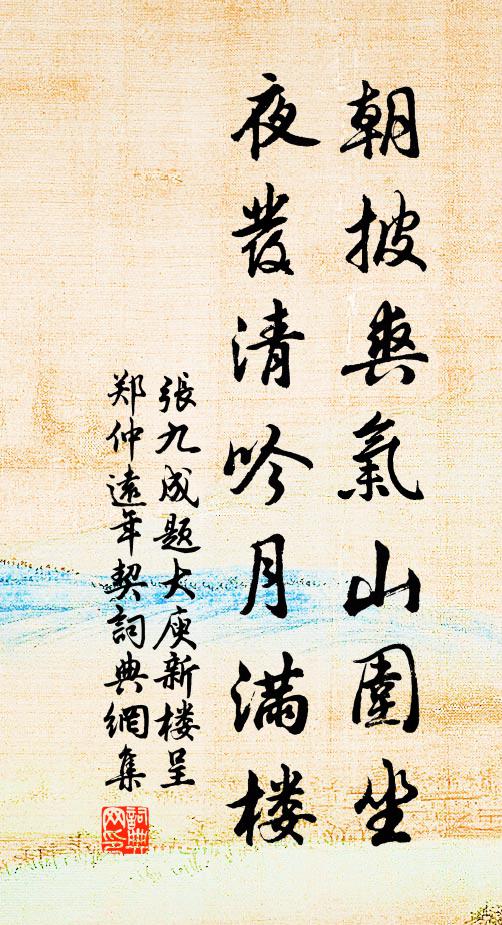 朝披爽氣山圍坐
夜發清吟月满楼
張九成题大庾新楼呈
郑仲遠年契詞典網集
詞典网印